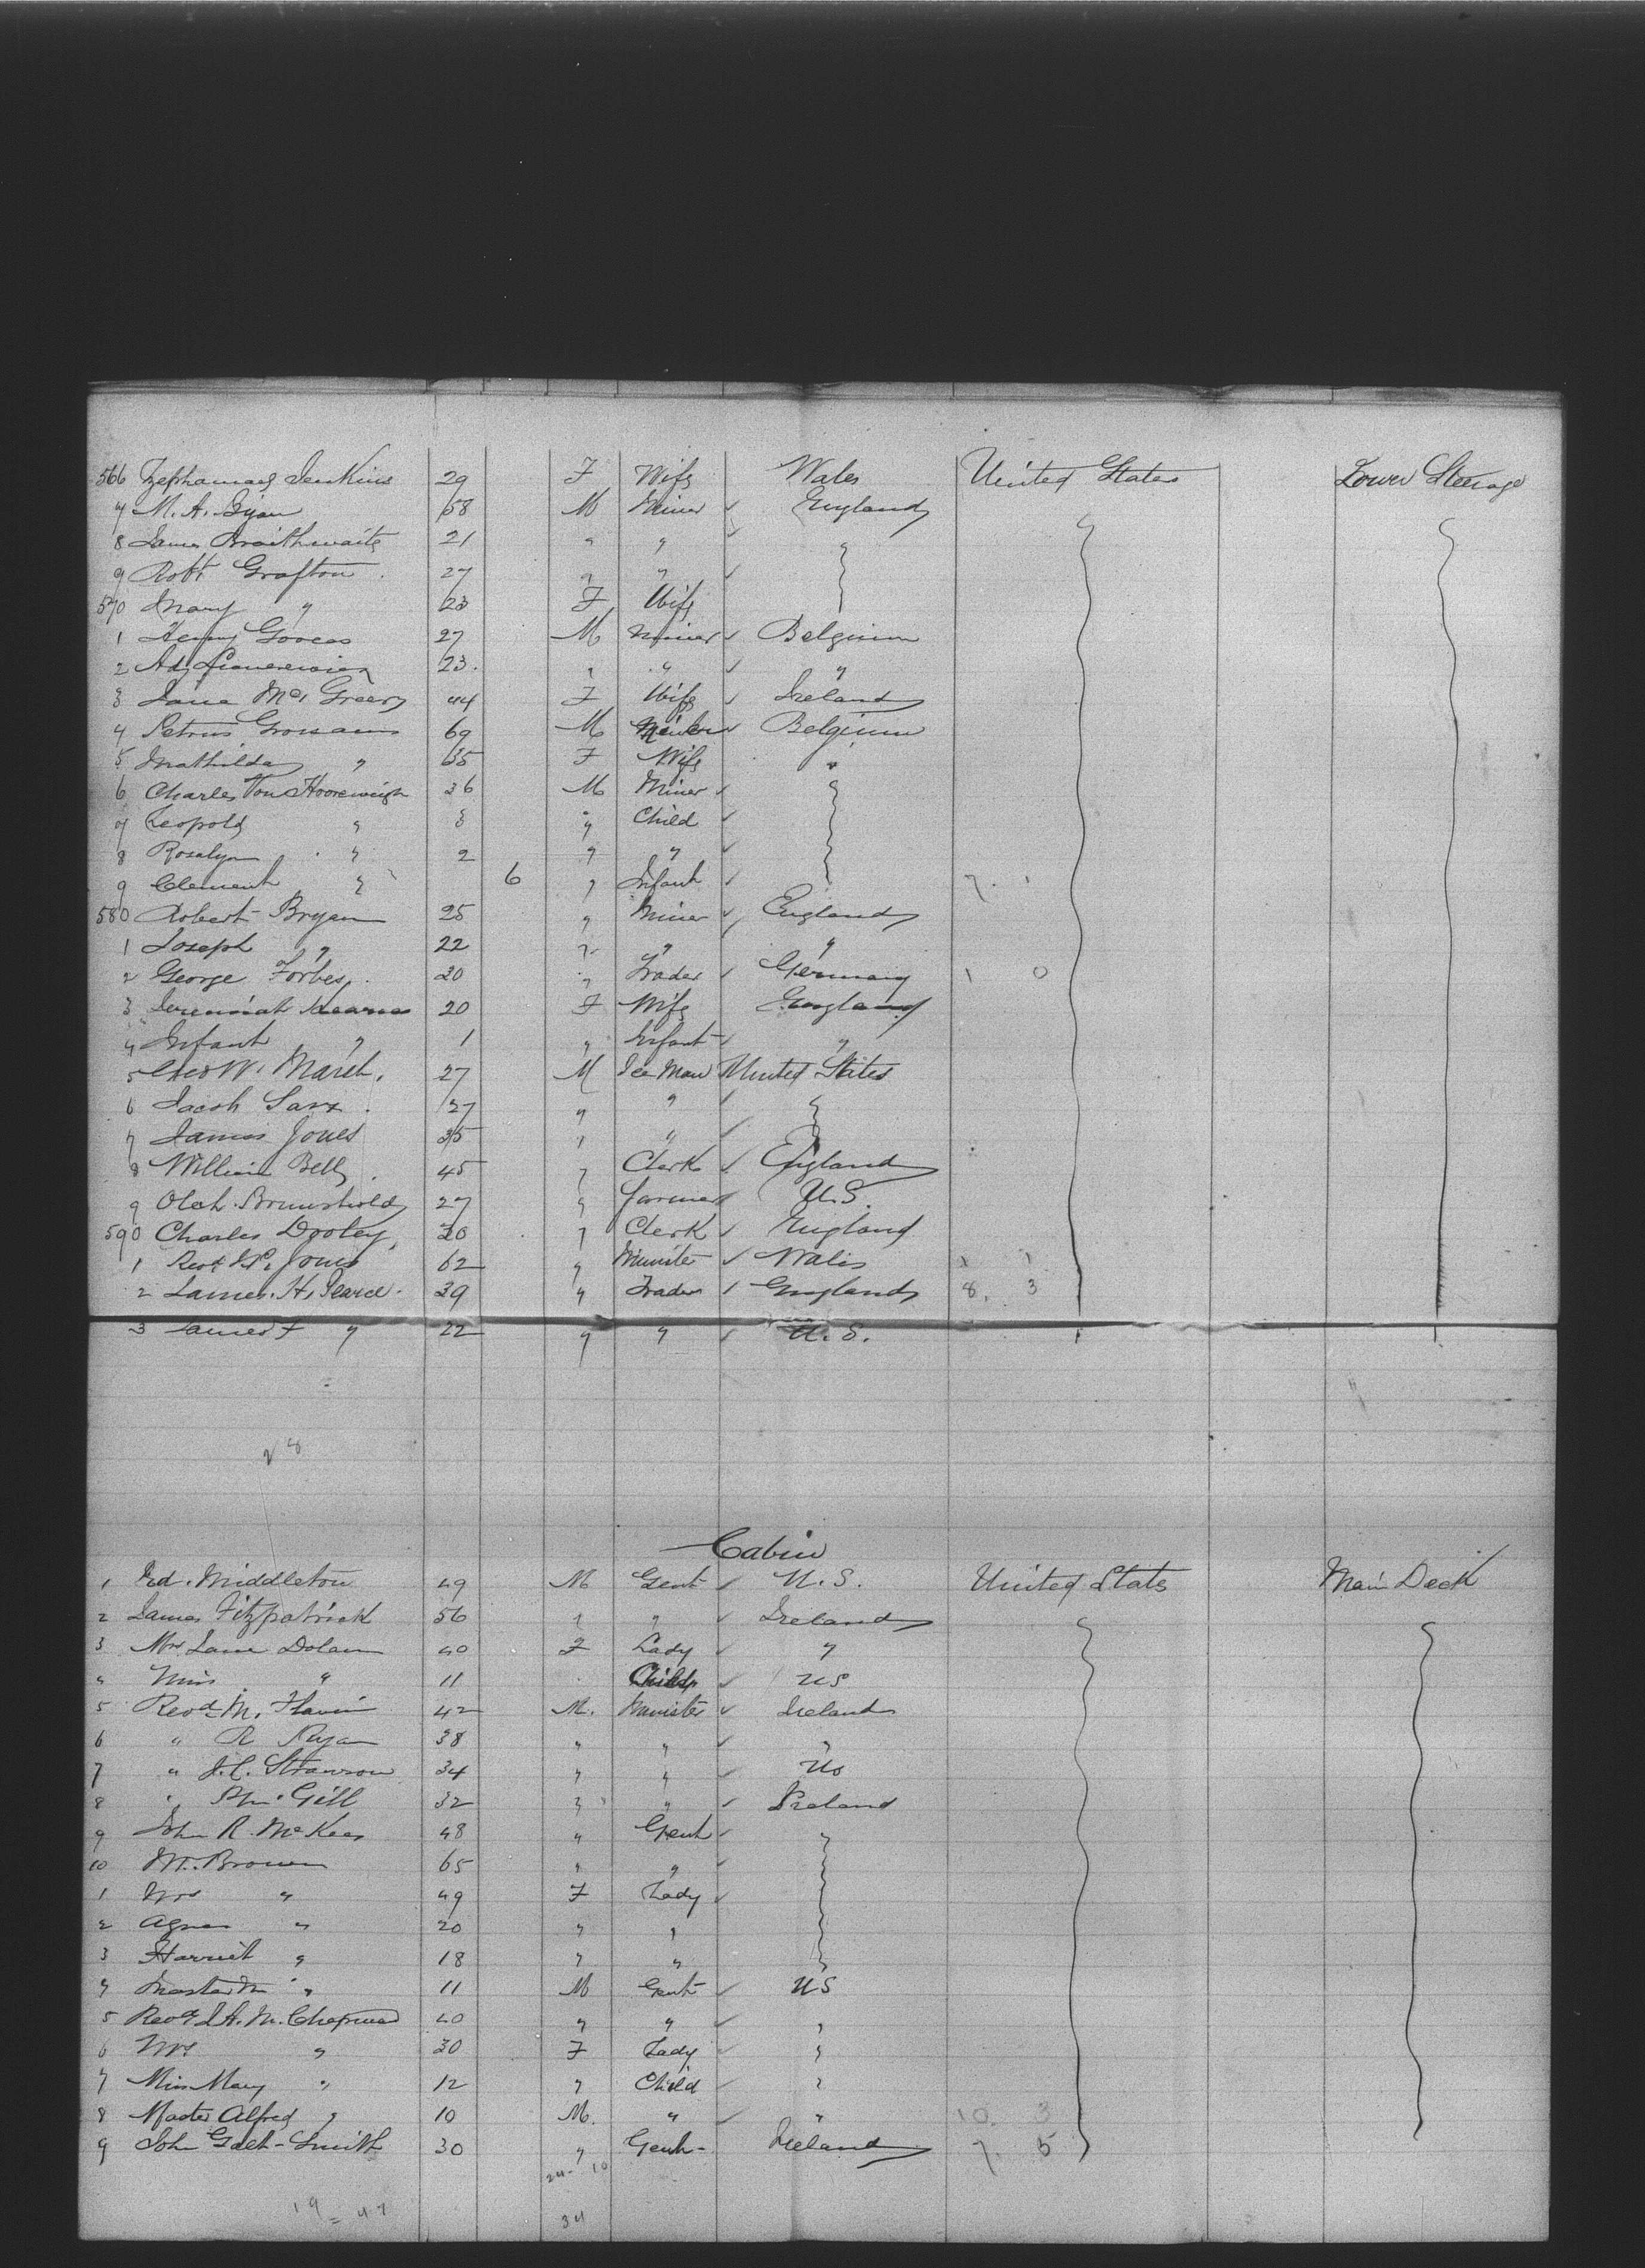 566 Zephaniah Jenkins 29 F Wife Wales United States Lower Steerage
7 M. A. 58 M Miner ✓ England
8 James Braithwaite 21 " " ✓ "
9 Robt Grafton 27 " " ✓
570 Mary " 23 F Wife
1 Henry 27 M Miner ✓ Belgium
2 23 " " ✓ "
3 Jane Mc Greery 44 F Wife ✓ Ireland
4 Petrus 69 M ✓ Belgium
5 Mathilda " 65 F Wife "
6 Charles Von Hooreweigh 36 M Miner ✓ "
7 Leopold " 3 " Child ✓
8 Rosalyn " 2 " " ✓
9 Clement " 6 " Infant ✓ 7. 1
580 Robert Bryan 25 " Miner ✓ England
1 Joseph " 22 " " "
2 George Forbes 20 " Trader ✓ Germany 1 0
3 Jeremiah Kearns 20 F Wife England
4 Infant " 1 " Infant "
5 Geo W. Marsh. 27 M Ice Man United States
6 Jacob 27 " " ✓ "
7 James Jones 35 " " ✓
8 William Bell 45 " Clerk ✓ England
9 27 " farmer U.S.
590 Charles Dooley, 20 " Clerk ✓ England
1 Revd Jones 62 " Minister ✓ Wales 1 1
2 James. H. Pearce. 39 " Trader ✓ England 8. 3
3 James F " 22 " " ✓ U. S.
28
Cabin
1 Ed. Middleton 49 M Gent ✓ U. S. United States Main Deck
2 James Fitzpatrick 56 " " ✓ Ireland
3 Mrs Jane Dolan 40 F Lady ✓ "
4 Miss " 11 Child ✓ US
5 Revd M. Flavin 42 M. Minister ✓ Ireland
6 " R Ryan 38 " " ✓ "
7 " J. C. Strawson 34 " " ✓ US
8 " Gill 32 " " ✓ Ireland
9 John R. McKees 48 " Gent ✓ "
10 M. Brown 65 " " ✓
1 Mrs " 49 F Lady ✓
2 Agnes " 20 " "
3 Harriet " 18 " "
4 Master " 11 M Gent ✓ US
5 Revd J. A. M. Chapman 40 " " ✓ "
6 Mrs " 30 F Lady ✓ "
7 Miss Mary " 12 " Child ✓ "
8 Master Alfred " 10 M. " ✓ " 10. 3
9 John Galt-Smith 30 " Gent- Ireland 7. 5
24- 10
19 = 47
34